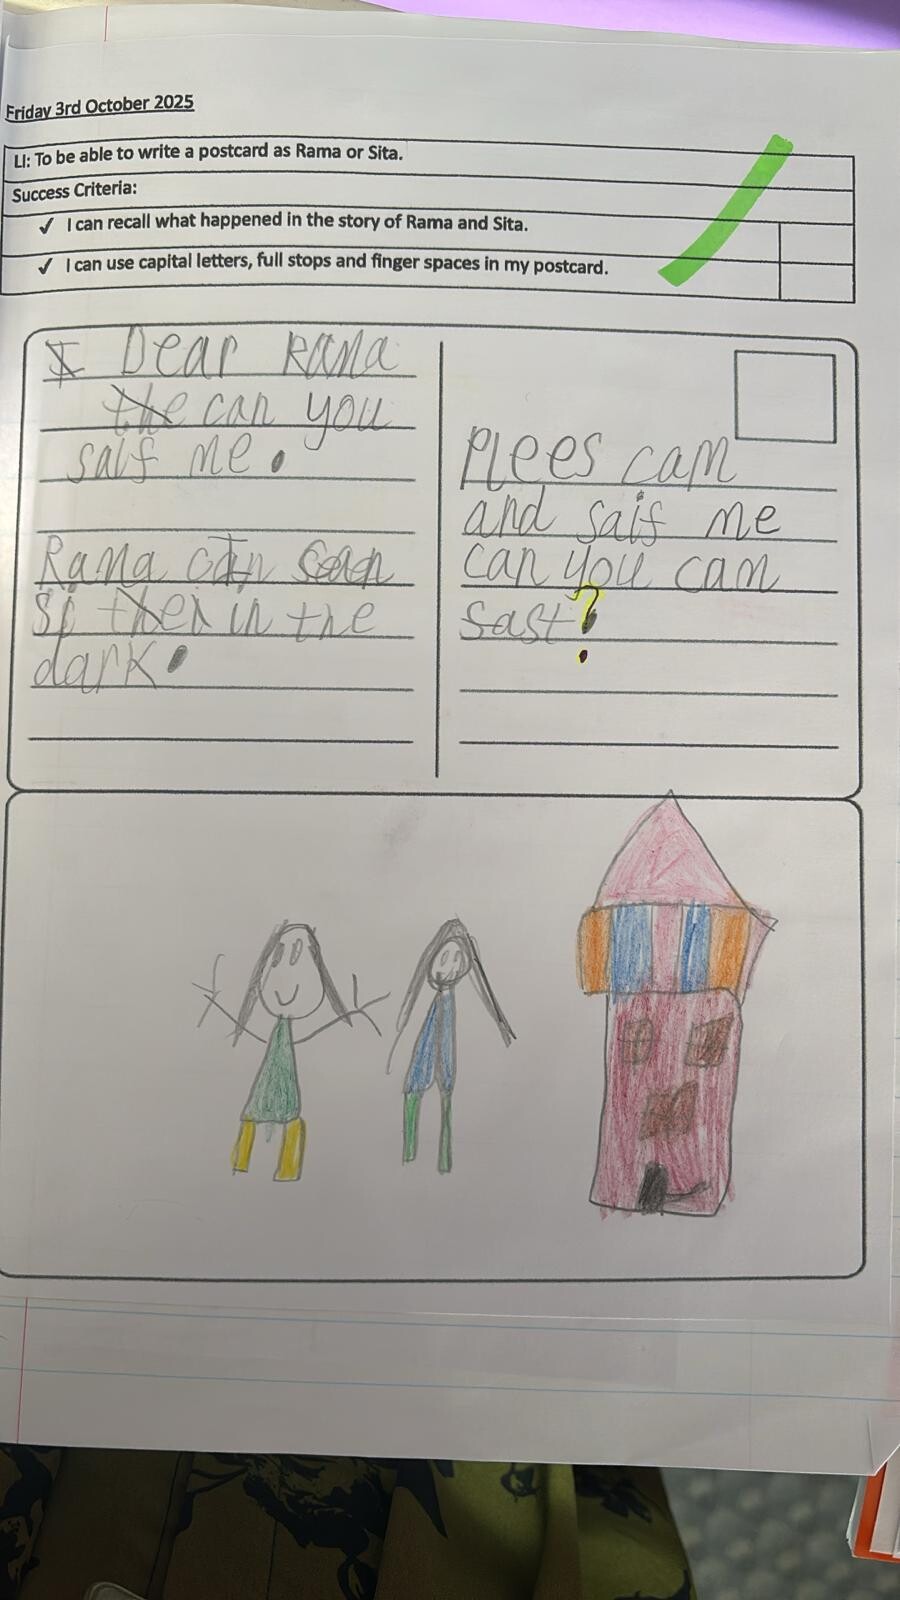 Friday 3rd October 2025
LI: To be able to write a postcard as Rama or Sita.
Success Criteria:
✓ I can recall what happened in the story of Rama and Sita.
✓ I can use capital letters, full stops and finger spaces in my postcard.
Dear Rama
can you
saif me.
Rama
in the
dark.
Plees cam
and saif me
can you cam
sast?